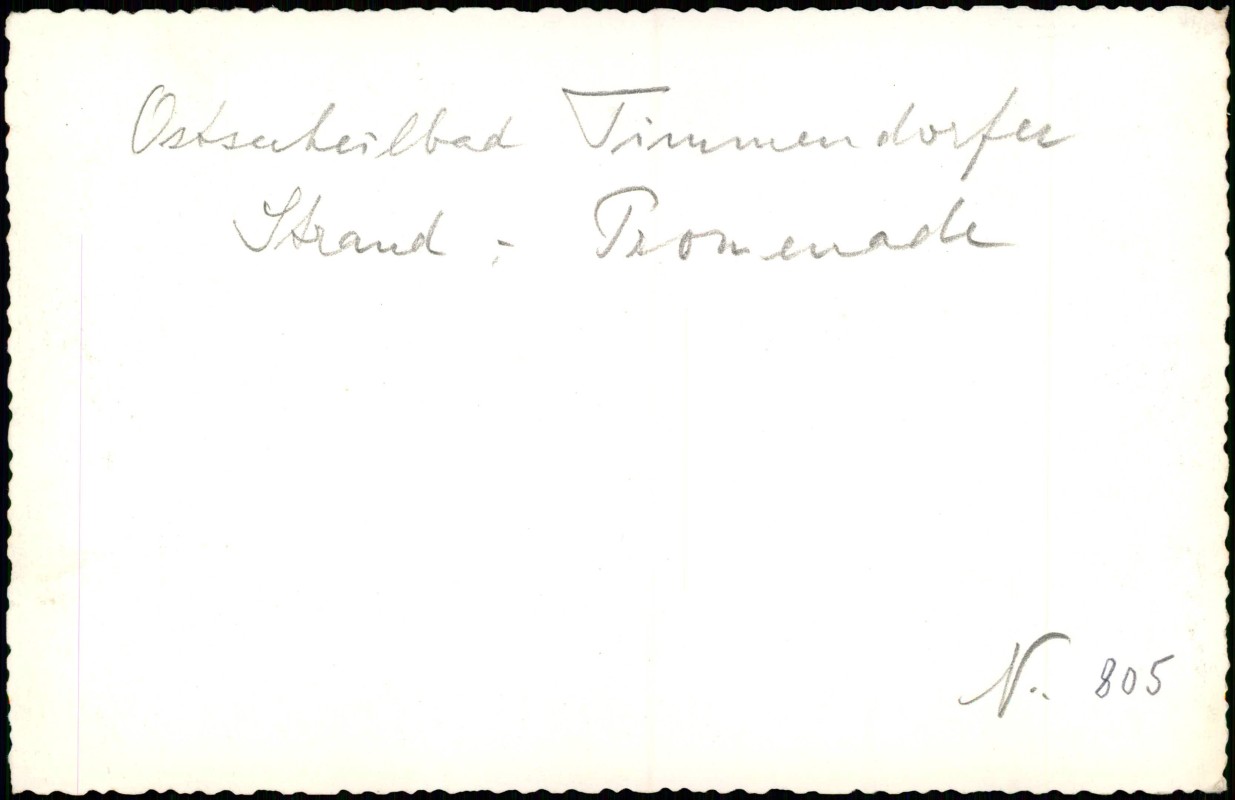 Ostseeheilbad Timmendorfer
Strand - Promenade
N.. 805